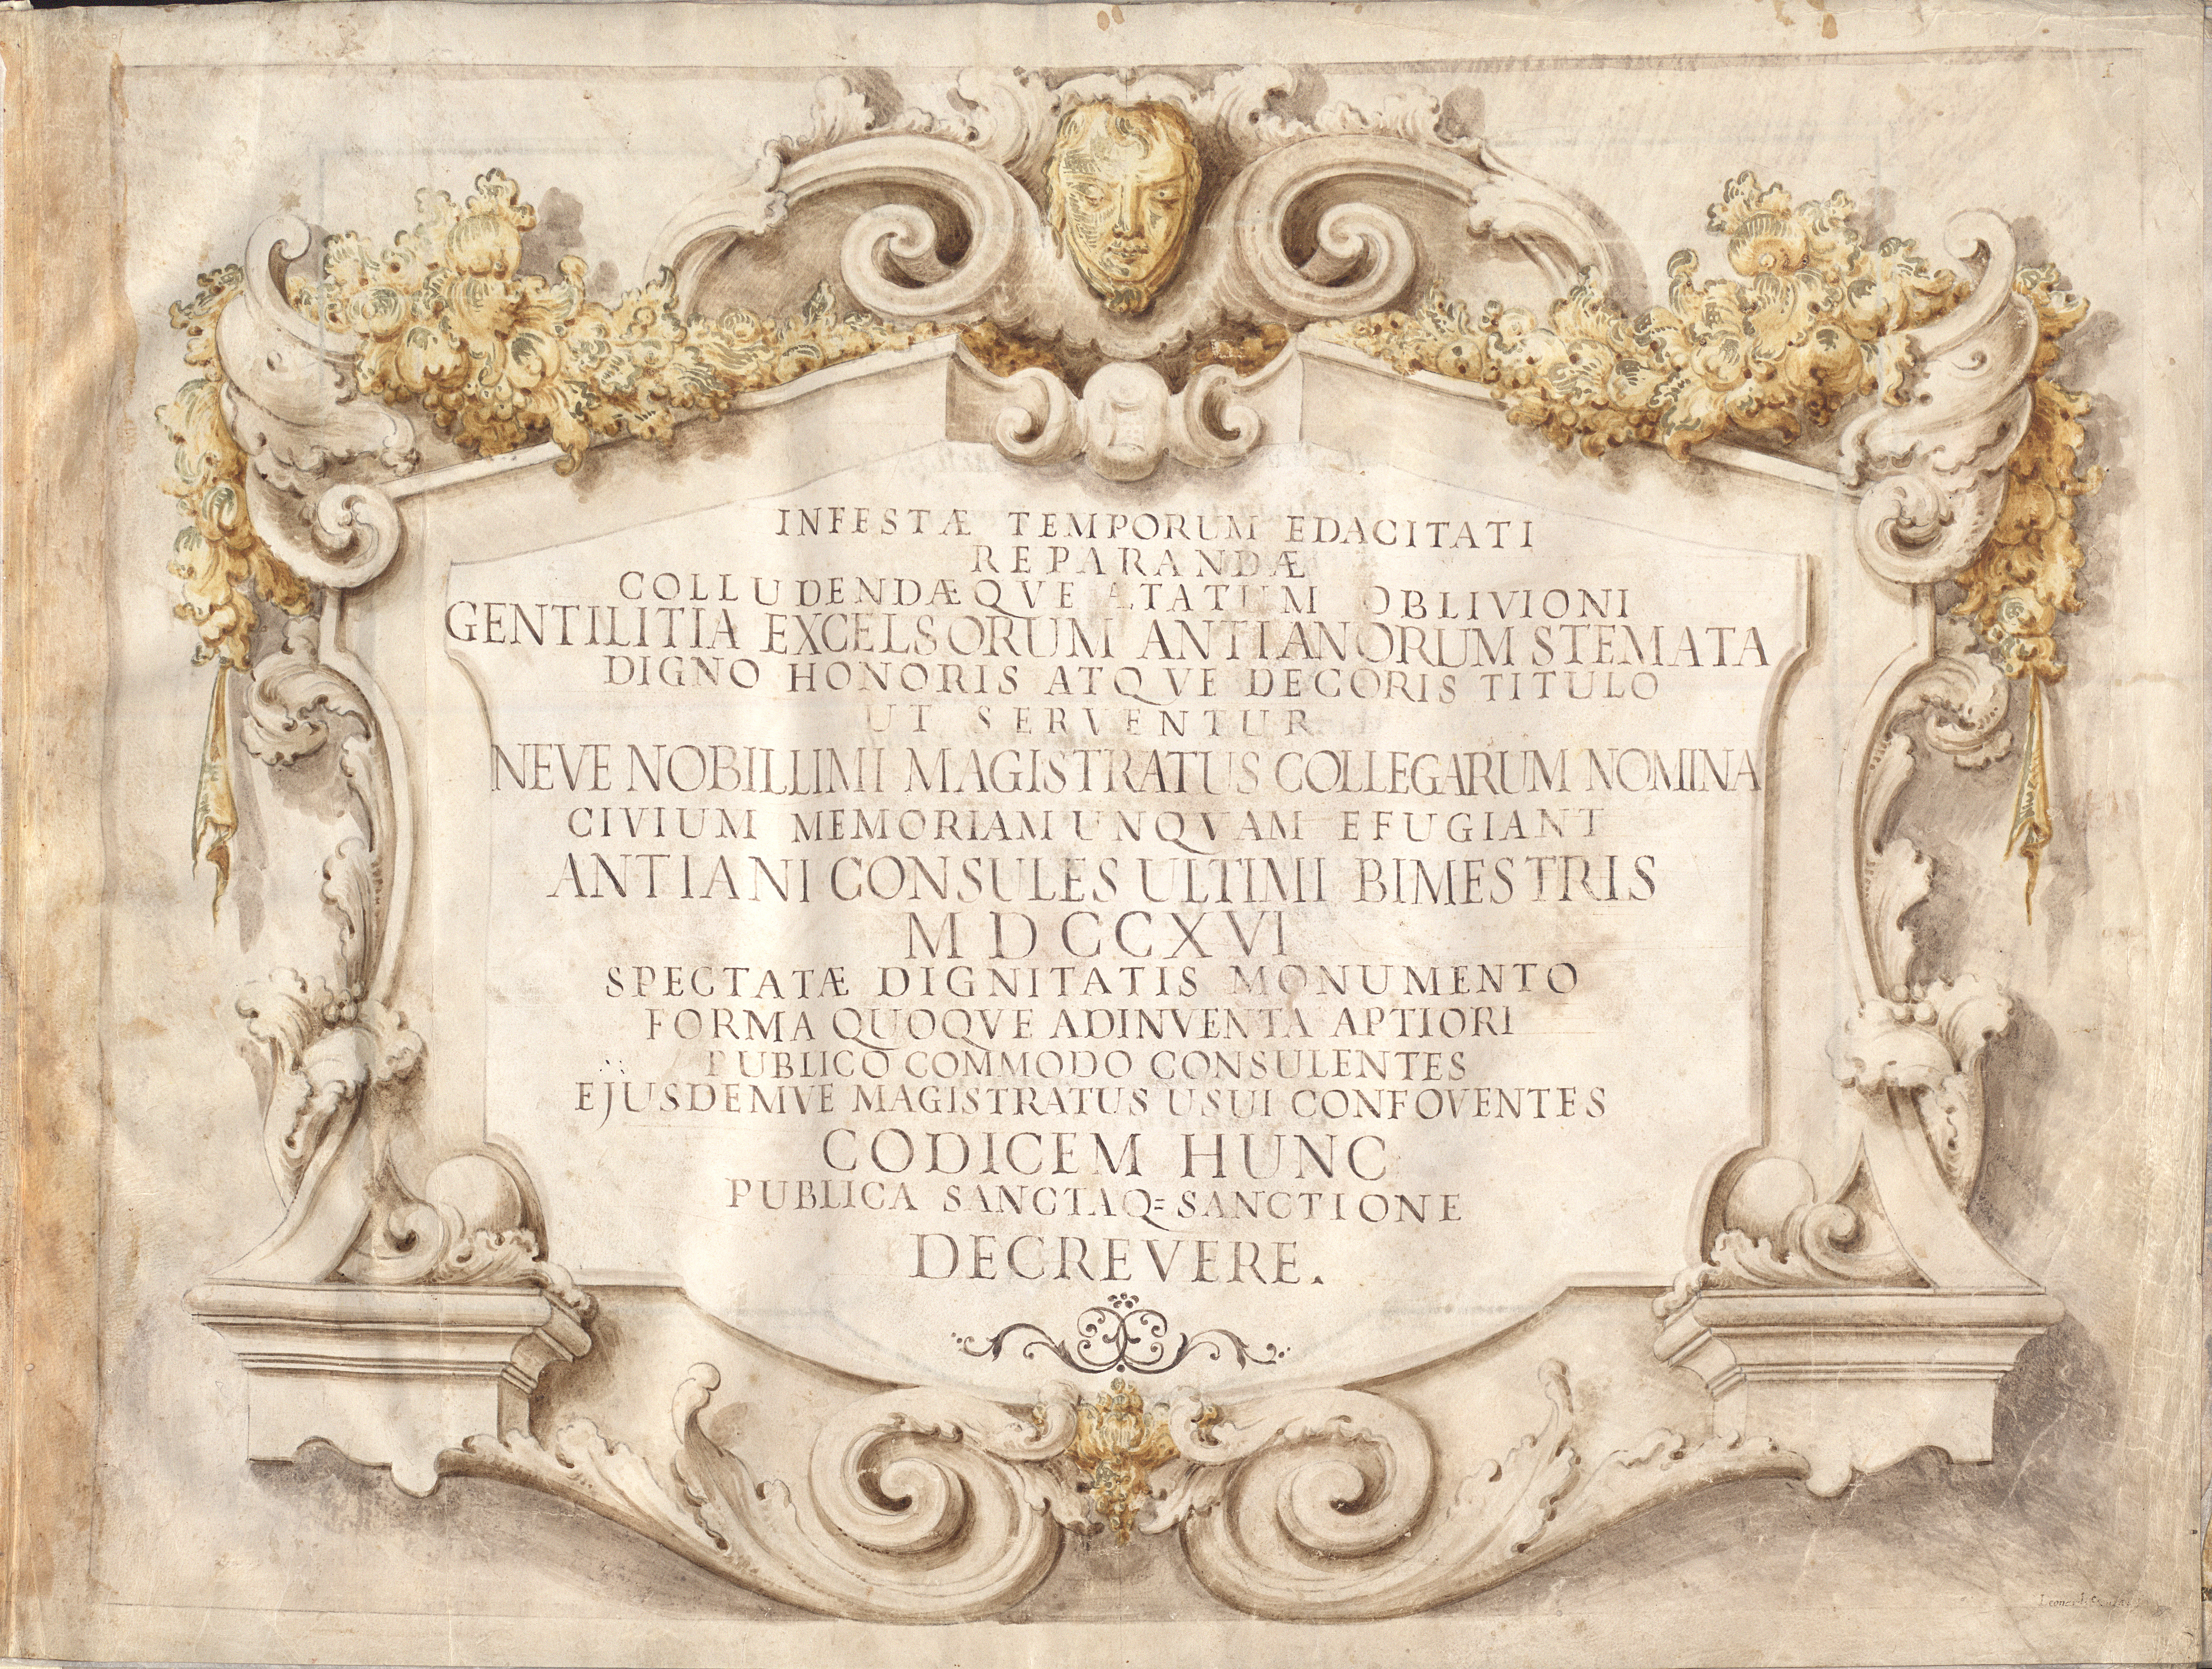 1
INFESTÆ TEMPORUM EDACITATI
REPARANDÆ
COLLUDENDÆQVE ÆTATUM OBLIVIONI
GENTILITIA EXCELSORUM ANTIANORUM STEMATA
DIGNO HONORIS ATQVE DECORIS TITULO
UT SERVENTUR
NEVE NOBILLIMI MAGISTRATUS COLLEGARUM NOMINA
CIVIUM MEMORIAM UNQVAM EFUGIANT
ANTIANI CONSULES ULTIMI BIMESTRIS
MDCCXVI
SPECTATÆ DIGNITATIS MONUMENTO
FORMA QUOQVE ADINVENTA APTIORI
PUBLICO COMMODO CONSULENTES
EJUSDEMVE MAGISTRATUS USUI CONFOVENTES
CODICEM HUNC
PUBLICA SANCTAQ= SANCTIONE
DECREVERE.